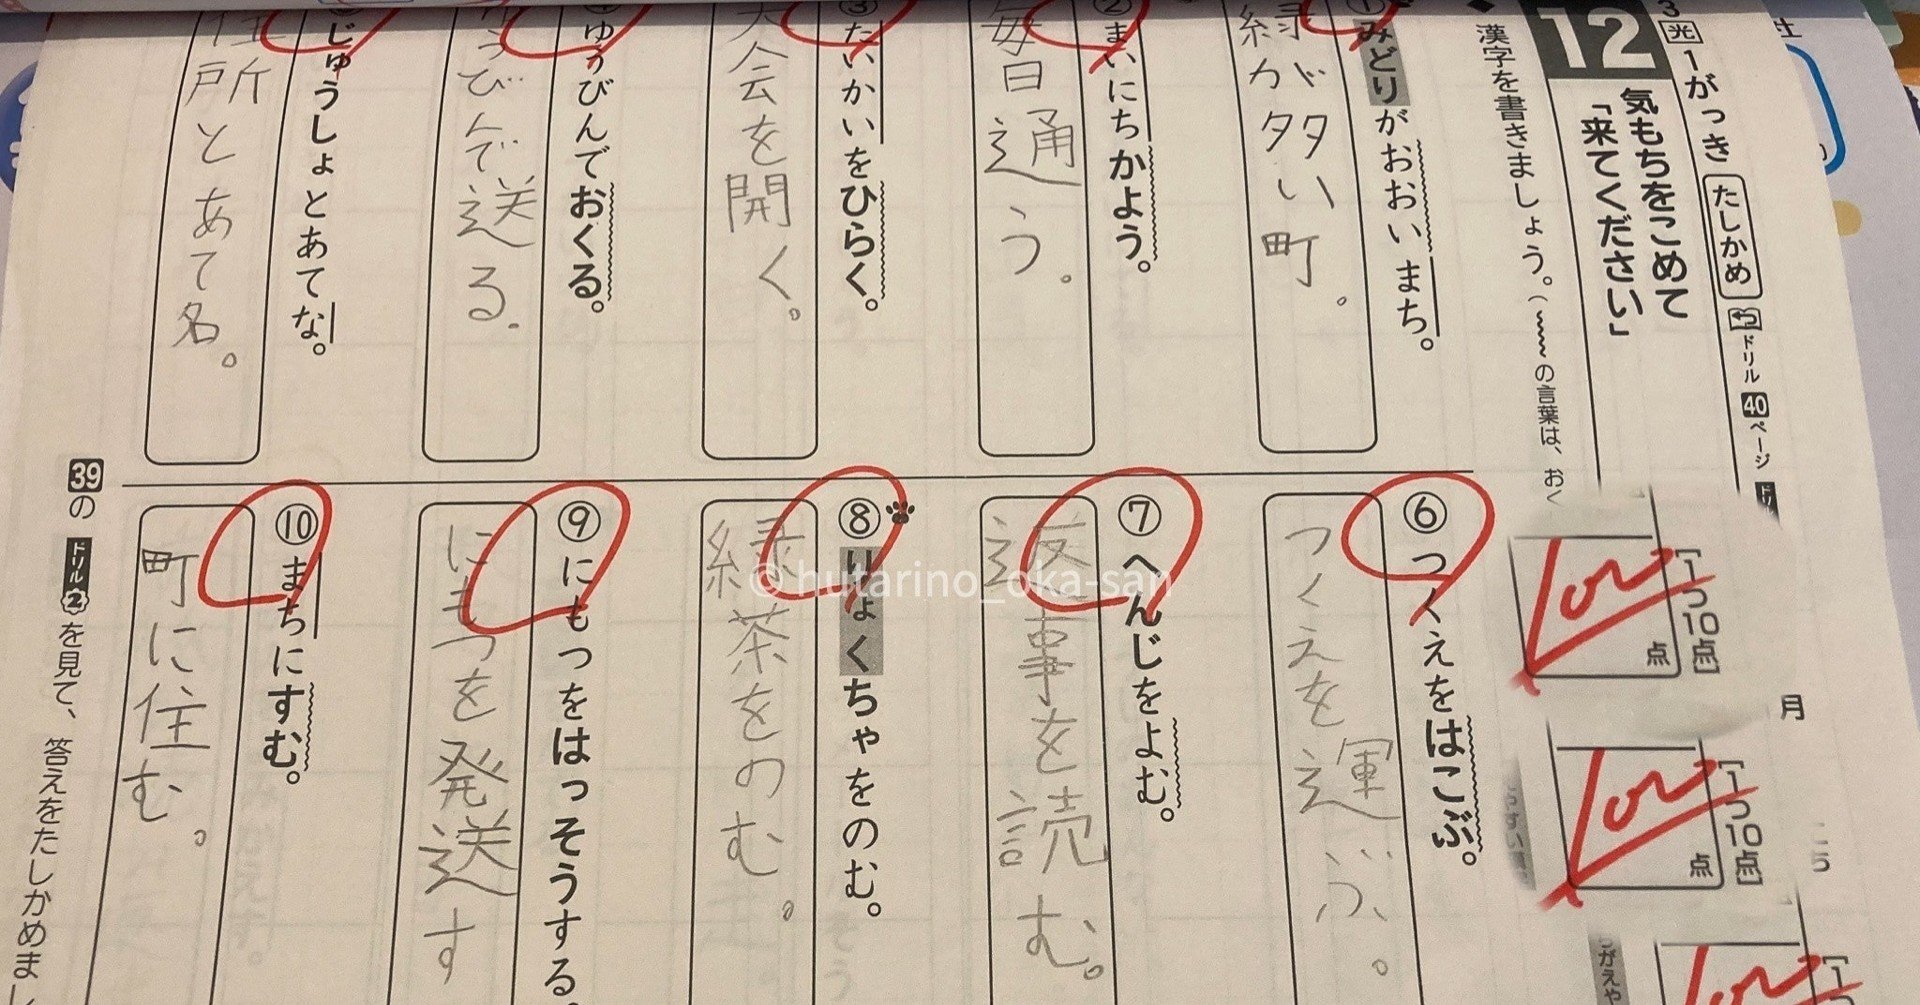 3
光
1がっき
たしかめ
ドリル 40 ページ
12
気もちをこめて
「来てください」
漢字を書きましょう。(〰〰の言葉は、おく
①みどりがおおいまち。
緑が多い町。
②まいにちかよう。
毎日通う。
③たいかいをひらく。
大会を開く。
ゆうびんでおくる。
うびんで送る.
じゅうしょとあてな。
住所とあて名。
⑥つくえをはこぶ。
つくえを運ぶ。
⑦へんじをよむ。
返事を読む。
⑧りょくちゃをのむ。
緑茶をのむ。
⑨にもつをはっそうする。
にもつを発送す
⑩まちにすむ。
町に住む。
39の ドリル2を見て、答えをたしかめまし
[1つ10点]
100
点
[1つ10点]
100
点
[1
月
社
© hutarino_oka-san